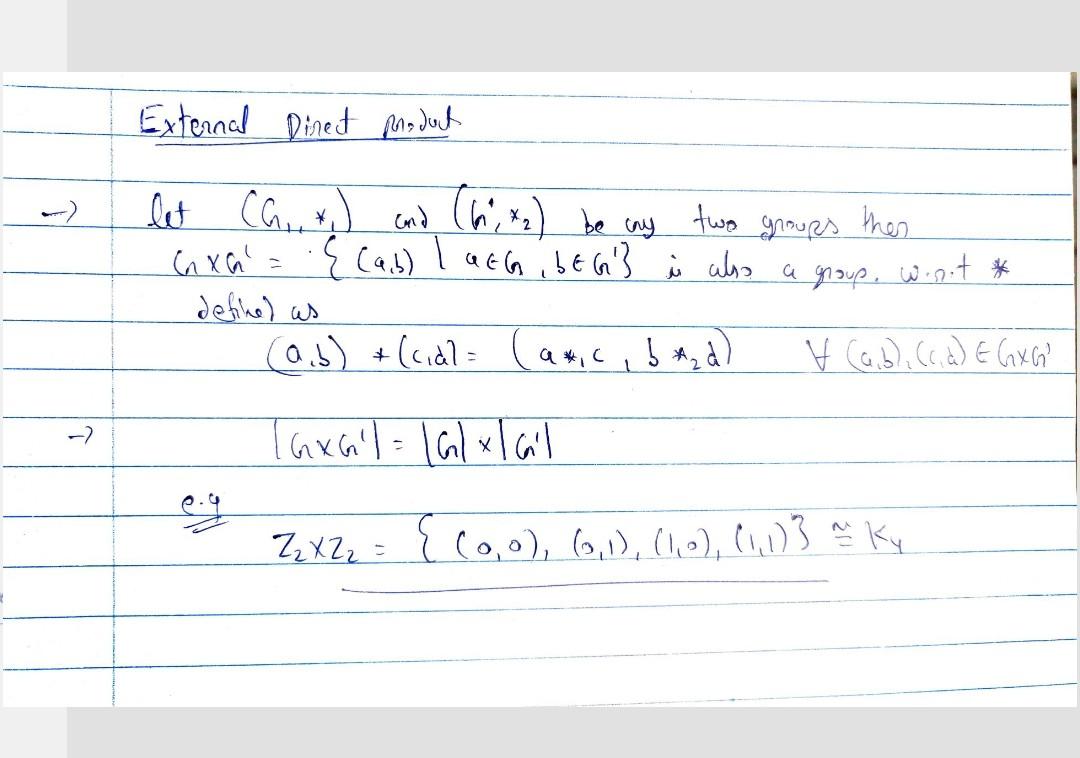 External Direct Product
→ let (G, *₁) and (G', *₂) be any two groups then
G×G' = { (a,b) | a∈G, b∈G'} is also a group. w.r.t *
defined as
(a,b) * (c,d) = (a *₁ c , b *₂ d) ∀ (a,b), (c,d) ∈ G×G'
→ |G×G'| = |G| × |G'|
e.g
Z₂×Z₂ = { (0,0), (0,1), (1,0), (1,1)} ≅ K₄